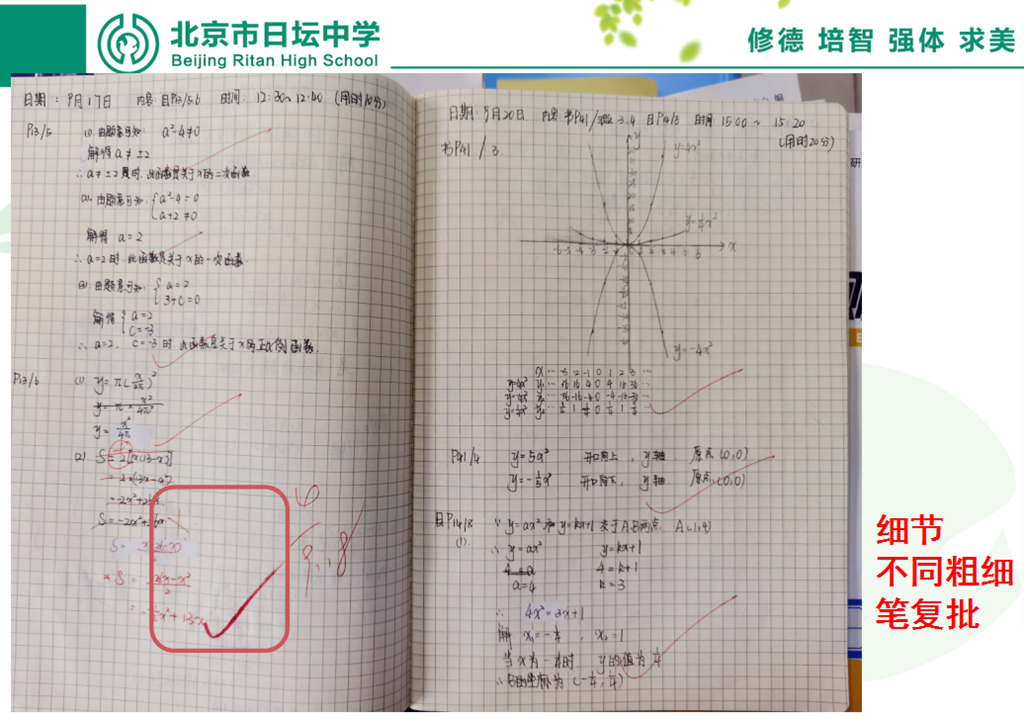 北京市日坛中学
Beijing Ritan High School
修德 培智 强体 求美
日期：9月17日 内容：目P13/5.6 时间：12:30~12:40 (用时10分)
P13/5 (1) 由题意可知 a²-4≠0
解得 a≠±2
∴ a≠±2 时，此函数是关于x的二次函数.
(2) 由题意可知 { a²-4=0
a+2≠0
解得 a=2
∴ a=2时，此函数是关于x的一次函数
(3) 由题意可知 { a=2
3+C=0
解得 { a=2
C=-3
∴ a=2, C=-3时 此函数是关于x的正比例函数.
P13/6 (1) y=π(x/2π)²
y=π·x²/4π²
y=x²/4π
(2) S=2[x(13-x)]
=-2x²+26x
S=-2x²+26x
9.18
日期：9月20日 内容：书P41/3.4 目P14/8 时间：15:00~15:20
(用时20分)
书P41/3
y
y=4x²
y=¼x²
x
y=-4x²
P41/4 y=5x² 开口向上，y轴 原点(0,0)
y=-⅕x² 开口向下，y轴 原点(0,0)
目P14/8 ∵ y=ax²和y=kx+1 交于A、B两点 A(1,4)
(1).
∴ y=ax² y=kx+1
4=a 4=k+1
a=4 k=3
∴ 4x²=3x+1
解 x₁=-¼, x₂=1
当x为-¼时 y的值为¼
∴B的坐标为(-¼,¼)
细节
不同粗细
笔复批